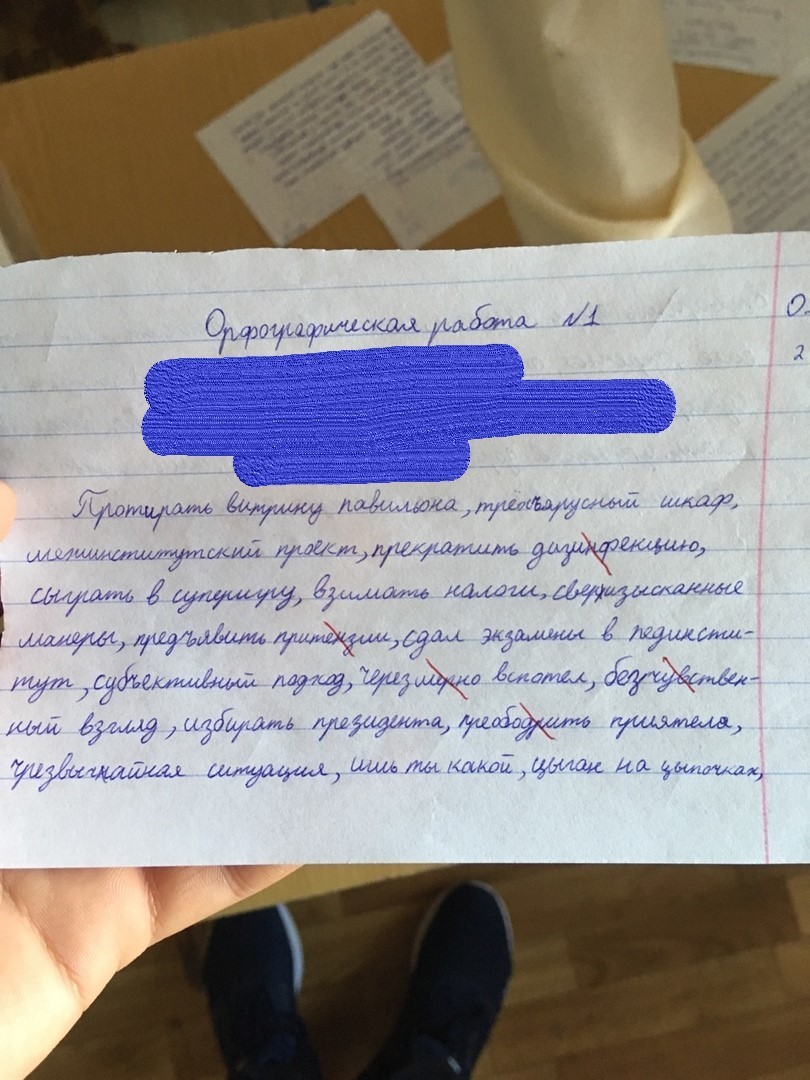 Орфографическая работа №1
О
2
Протирать витрину павильона, трёхъярусный шкаф,
межинститутский проект, прекратить дизинфекцию,
сыграть в суперигру, взимать налоги, сверхизысканные
манеры, предъявить притензии, сдал экзамены в пединсти-
тут, субъективный подход, через мерно вспотел, безчувствен-
ный взгляд, избирать президента, преободрить приятеля,
чрезвычайная ситуация, ишь ты какой, цыган на цыпочках,